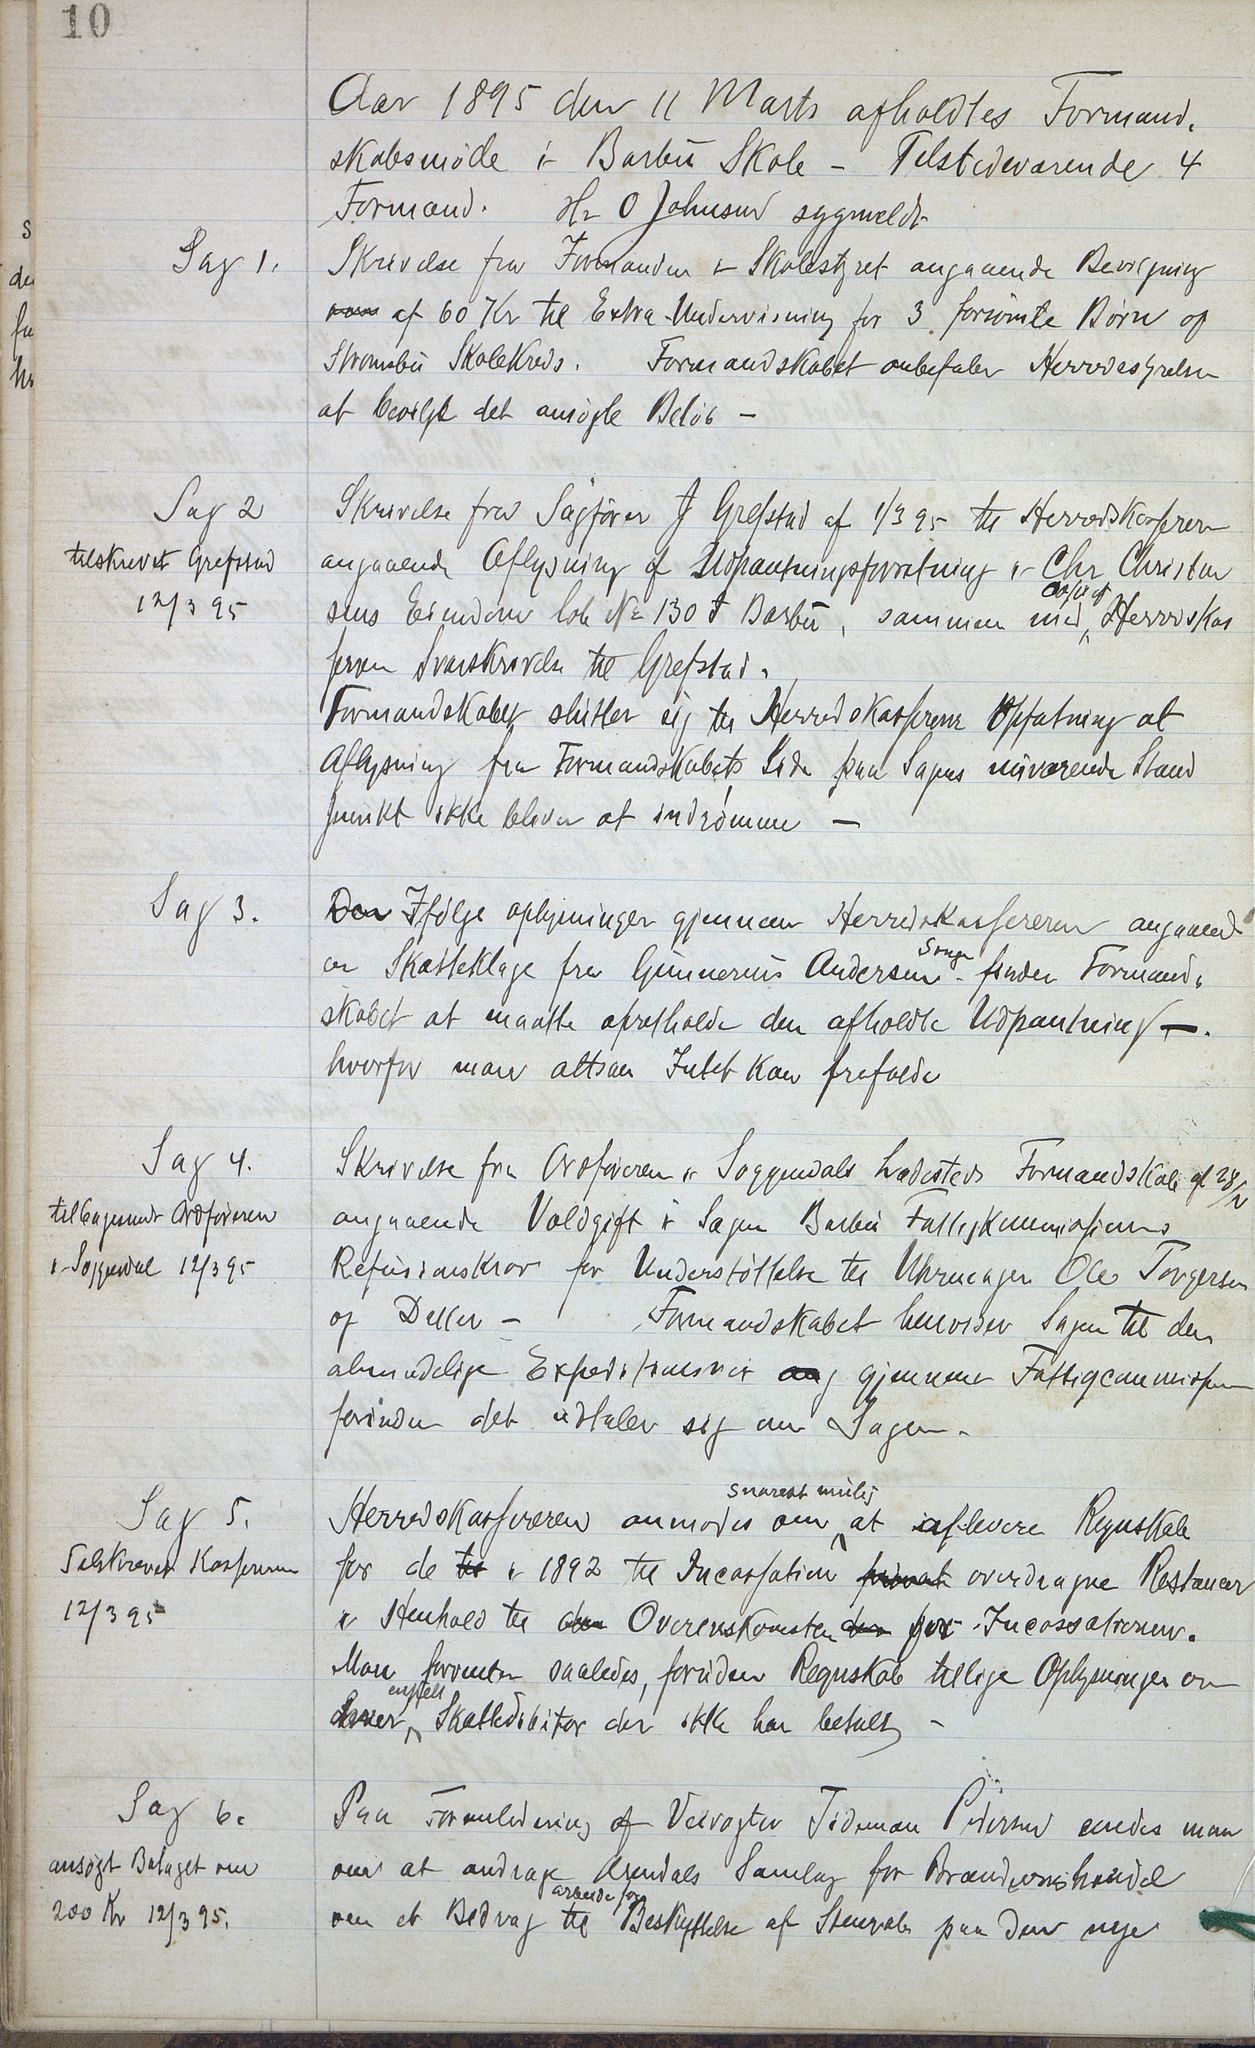 10
Aar 1895 den 11 Marts afholdtes Formand.
skabsmøde i Barbu Skole - Tilstedeværende 4
Formænd. Hr O Johnsen sygmeldt
Sag 1.
Skrivelse fra Formanden i Skolestyret angaaende Bevilgning
af 60 Kr til Extra Undervisning for 3 forsømte Børn og
Strømsbu Skolekreds. Formandskabet anbefaler Herredsstyrelsen
at bevilge det ansøgte Beløb -
Sag 2
tilskrevet Grefstad
12/3 95
Skrivelse fra Sagfører J Grefstad af 1/3 95 til Herredskassereren
angaaende Aflysning af Udpantningsforretning i Chr Christen
sens Eiendom Løb No 130 I Barbu, sammen med Copi af Herredskas
sereren Svarskrivelse til Grefstad.
Formandskabet slutter sig til Herredskasserens Opfatning at
Aflysning fra Formandskabets Side paa Sagens nuværende Stand
punkt ikke bliver at indrømme -
Sag 3.
Den Ifølge oplysninger gjennem Herredskassereren angaaende
en Skatteklage fra Gunnerius Andersen Songe - finder Formand.
skabet at maatte opretholde den afholdte Udpantning -.
hvorfor man altsaa Intet kan frafalde
Sag 4.
tilbagesendt Ordføreren
i Soggendal 12/3 95
Skrivelse fra Ordføreren i Soggendals Ladesteds Formandskab af 28/2
angaaende Voldgift i Sagen Barbu Fattigkommissions
Refusionskrav for Understøttelse til Uhrmager Ole Torgersen
og Datter - Formandskabet henviser Sagen til den
almindelige Expeditionsvei gjennem Fattigcommissionen
forinden det udtaler sig om Sagen.
Sag 5.
Tilskrevet Kassereren
12/3 95
Herredskassereren anmodes om snarest mulig at aflevere Regnskab
for de til i 1892 til Incassation privat overdragne Restancer
i Henhold til den Overenskomsten den for Incassationen.
Man forventer saaledes, foruden Regnskab tillige Oplysninger om
hver enkelt Skattedebitor der ikke har betalt -
Sag 6.
ansøgt Bolaget om
200 Kr 12/3 95.
Paa Formledning af Veivogter Tideman Pedersen enedes man
om at andrage Arendals Samlag for Brændevinshandel
om et Bidrag til arbeide for Beskyttelse af Stenvolt paa den nye